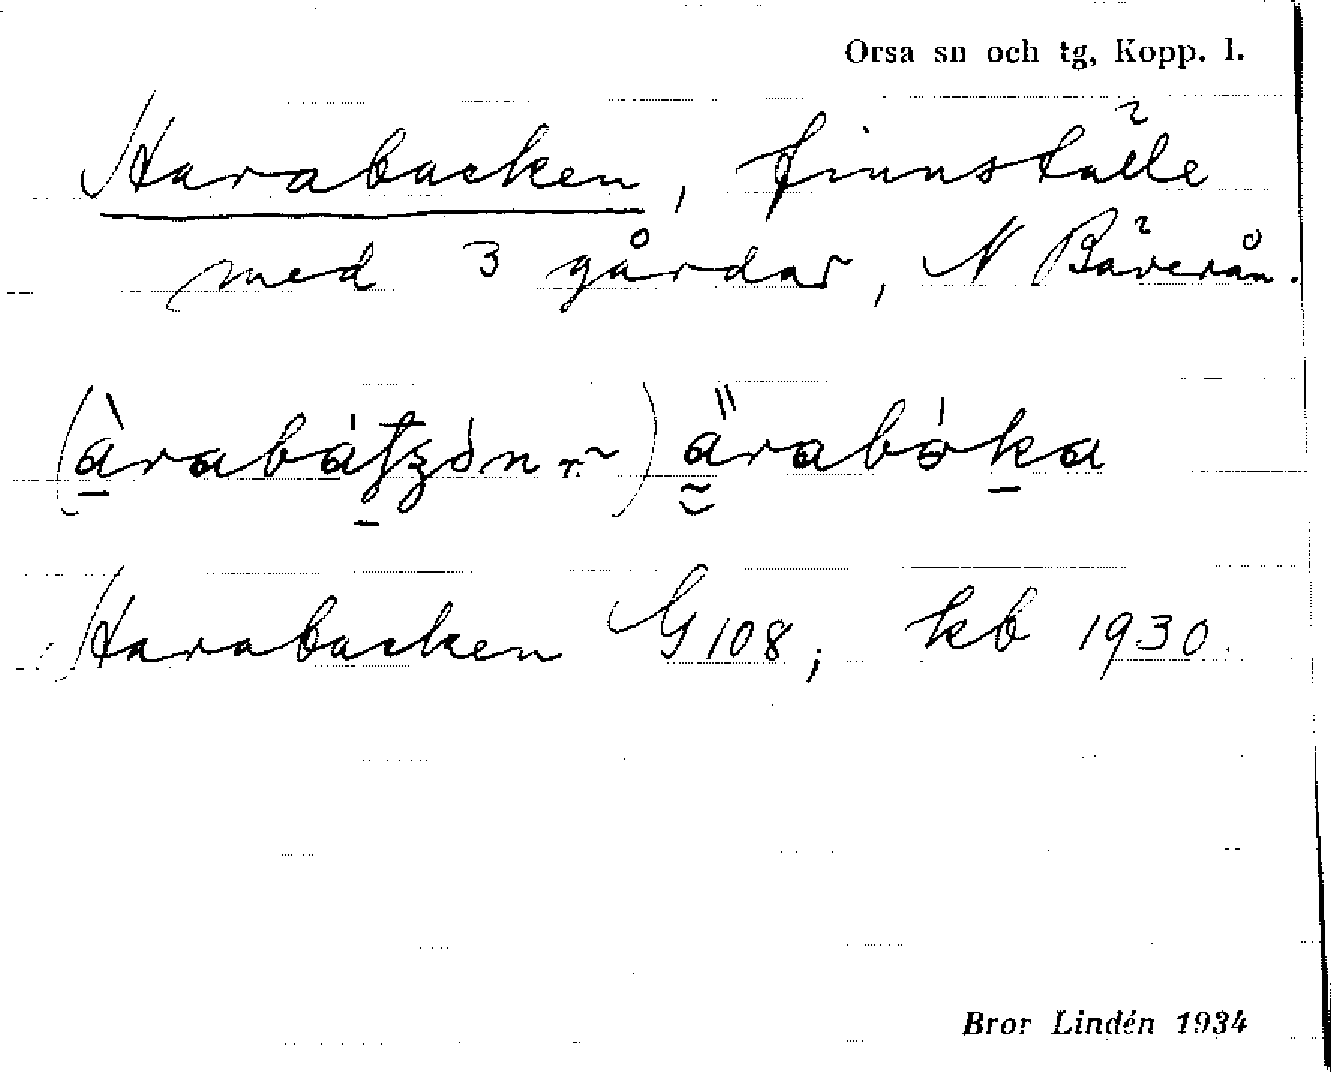 Orsa sn och tg, Kopp. l.
Harabacken, finnställe
med 3 gårdar, N Bäverån.
Harabacken G 108; kb 1930.
Bror Lindén 1934